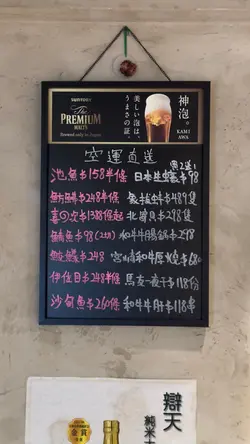 SUNTORY
The
PREMIUM
MALT'S
Brewed only in Japan
美しい泡は、
うまさの証。
神泡。
KAMI
AWA
空運直送
池魚$158半條
日本生蠔$98
$248半條
$489隻
喜之次$1388條起
北寄貝$298隻
魚$98(2切)
和牛$298
$248
宮崎和牛厚燒$680
伊佐目$248半條
馬支一夜干$118份
沙甸魚$260條
和牛肝$118串
辯天
純米
金賞